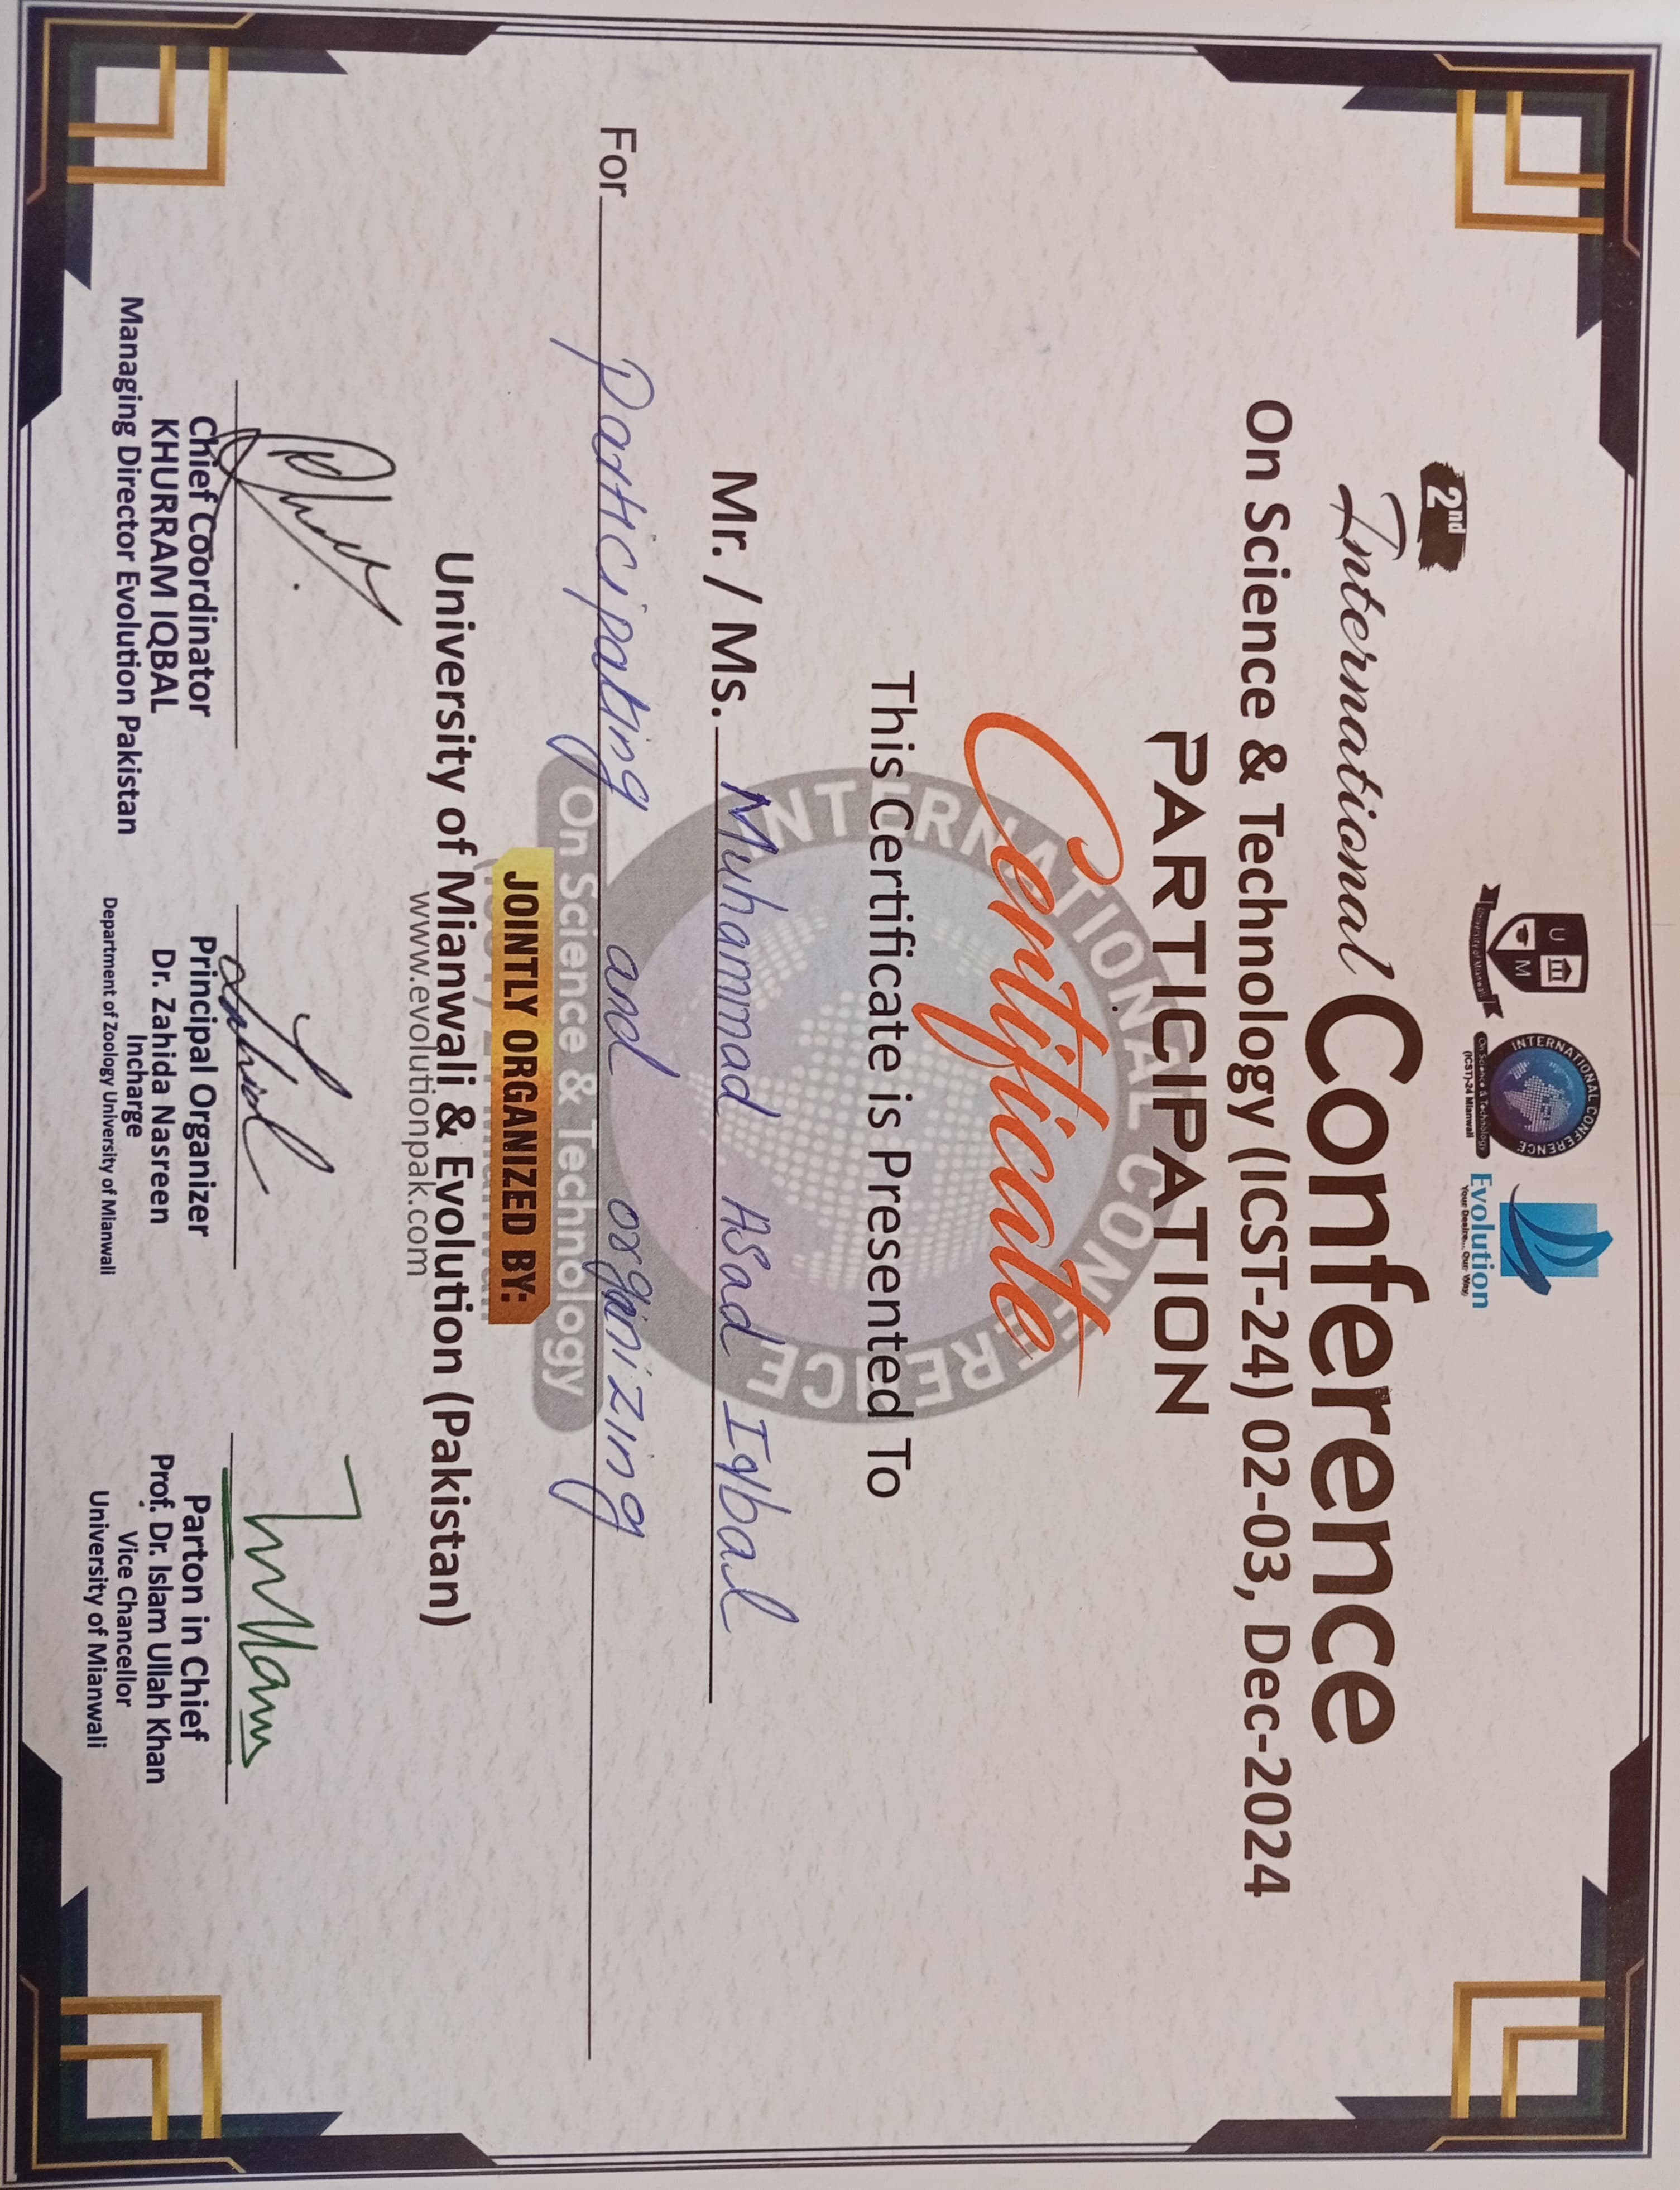 U
M
University of Mianwali
INTERNATIONAL CONFERENCE
On Science & Technology
(ICST)-24 Mianwali
Evolution
Your Desire... Our Way
2nd
International Conference
On Science & Technology (ICST-24) 02-03, Dec-2024
PARTICIPATION
Certificate
INTERNATIONAL CONFERENCE
This Certificate is Presented To
Mr. / Ms. Muhammad Asad Iqbal
For participating and organizing
On Science & Technology
JOINTLY ORGANIZED BY:
(ICST)-24 Mianwali
University of Mianwali & Evolution (Pakistan)
www.evolutionpak.com
Chief Coordinator
KHURRAM IQBAL
Managing Director Evolution Pakistan
Zahid
Principal Organizer
Dr. Zahida Nasreen
Incharge
Department of Zoology University of Mianwali
Parton in Chief
Prof. Dr. Islam Ullah Khan
Vice Chancellor
University of Mianwali